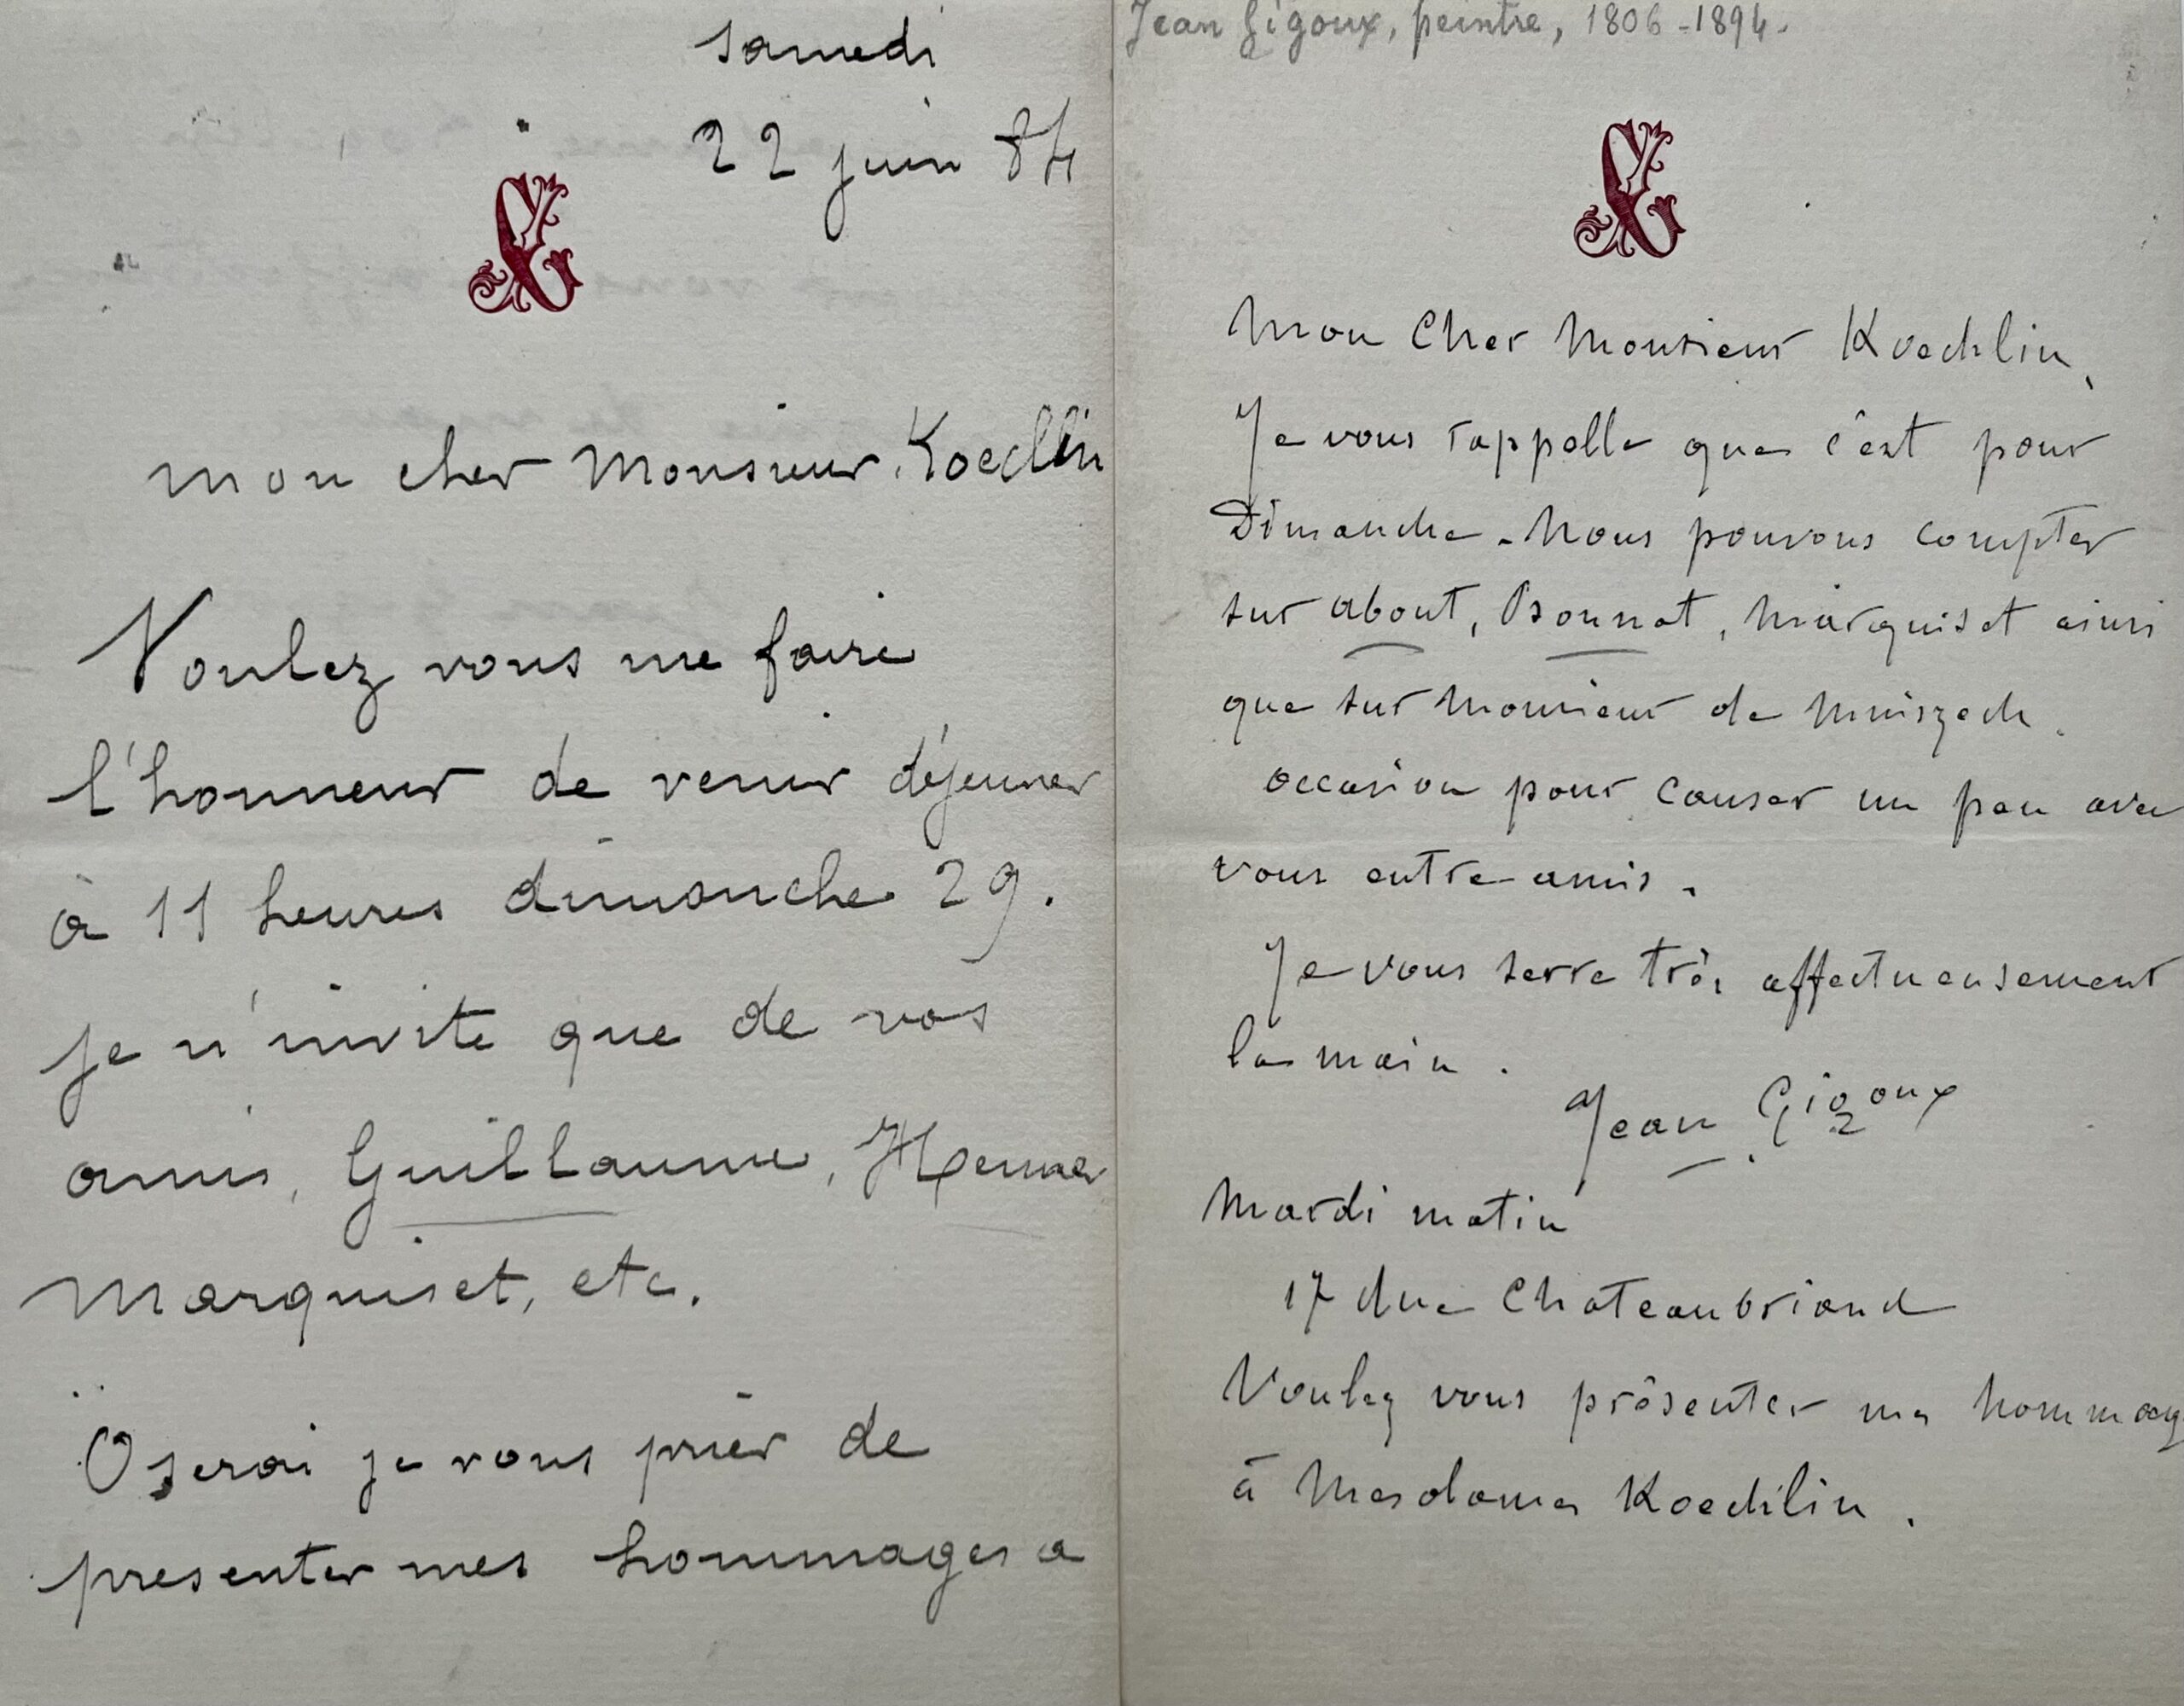 samedi
22 juin 84
mon cher Monsieur Koechlin
Voulez vous me faire
l'honneur de venir déjeuner
à 11 heures dimanche 29.
je n'invite que de vos
amis, Guillaume, Henner
Marquiset, etc.
Oserai je vous prier de
presenter mes hommages a
Jean Gigoux, peintre, 1806-1894.
Mon Cher Monsieur Koechlin,
Je vous rappelle que c'est pour
Dimanche - Nous pouvons compter
sur about, Bonnat, Marquiset ainsi
que sur Monsieur de Mniszech.
occasion pour causer un peu avec
vous entre amis.
Je vous serre très affectueusement
la main.
Jean Gigoux
Mardi matin
17 rue Chateaubriand
Voulez vous présenter mes hommag
à Mesdames Koechlin.